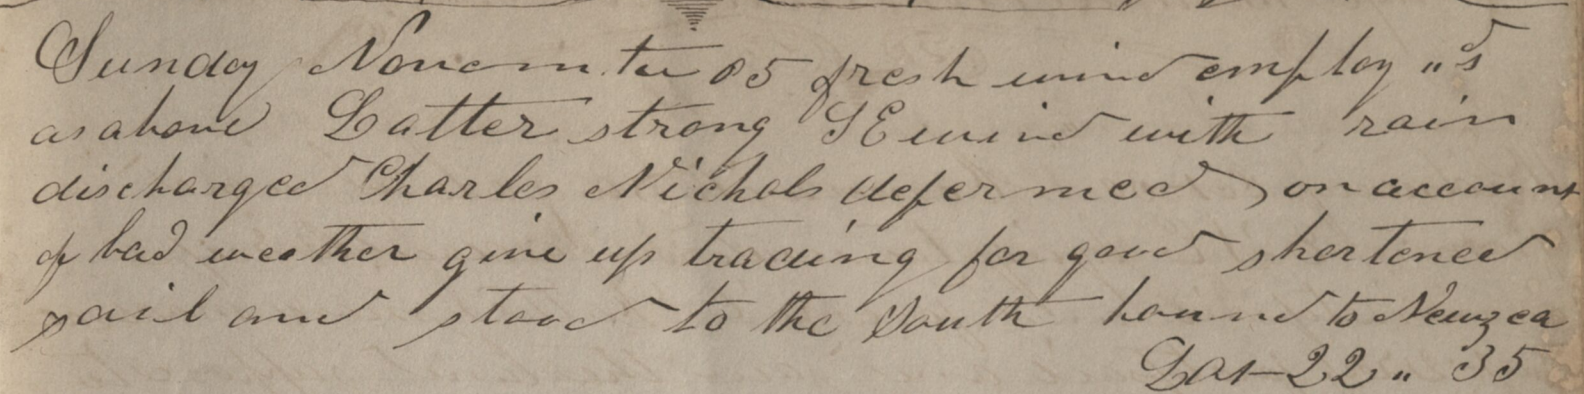 Sunday November 05 fresh wind employ "d
as above Latter strong SE wind with rain
discharged Charles Nichols defermed on account
of bad weather give up trading for good shortened
sail and stood to the South bound to Newzea
Lat 22 " 35